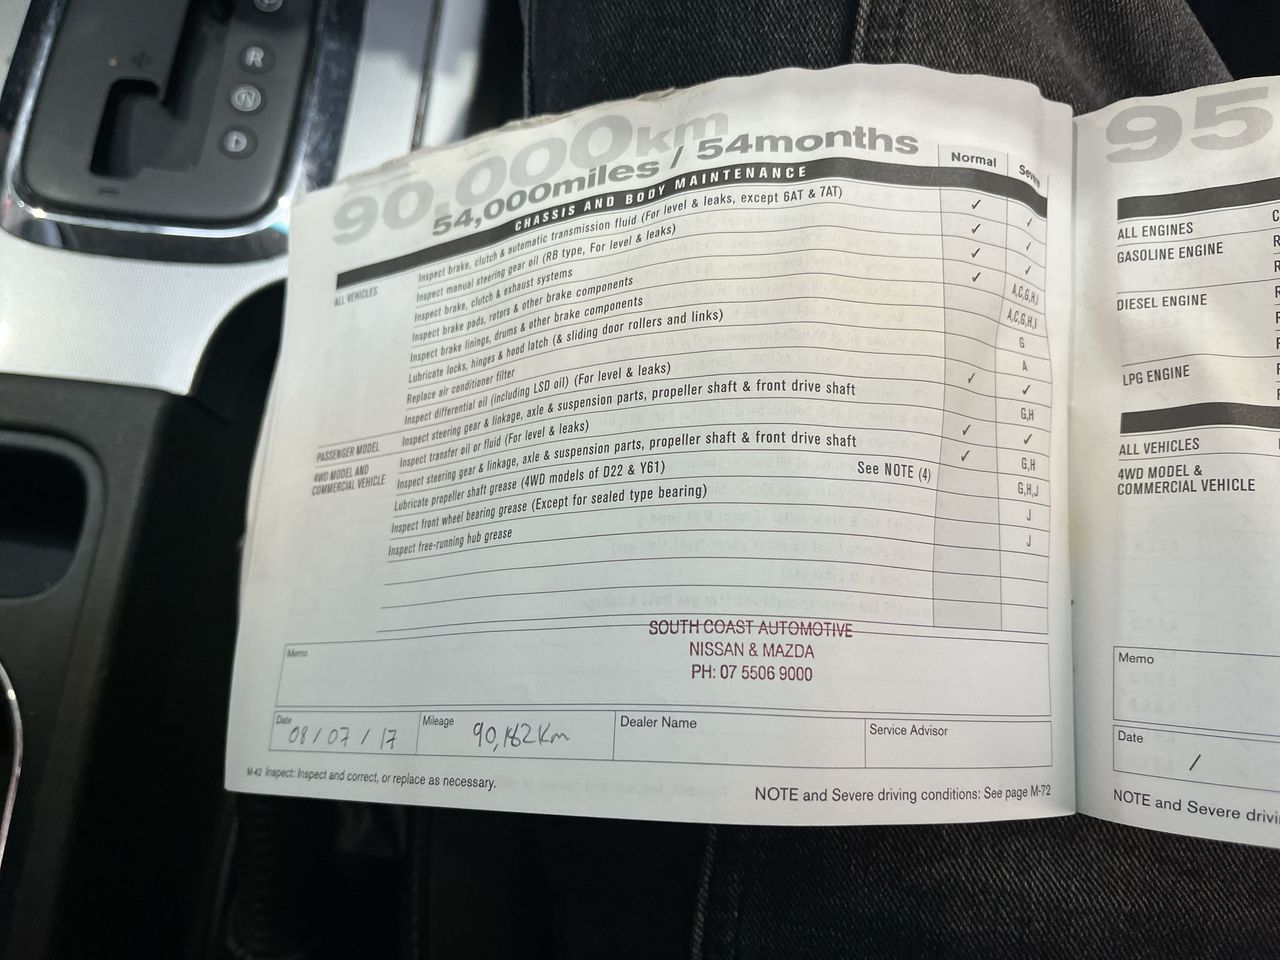 R
N
90,000km
54,000miles / 54months
CHASSIS AND BODY MAINTENANCE
Normal
Severe
ALL VEHICLES
Inspect brake, clutch & automatic transmission fluid (For level & leaks, except 6AT & 7AT) ✓ ✓
Inspect manual steering gear oil (RB type, For level & leaks) ✓ ✓
Inspect brake, clutch & exhaust systems ✓ ✓
Inspect brake pads, rotors & other brake components ✓ A,C,G,H,I
Inspect brake linings, drums & other brake components A,C,G,H,I
Lubricate locks, hinges & hood latch (& sliding door rollers and links) G
Replace air conditioner filter A
Inspect differential oil (including LSD oil) (For level & leaks) ✓ ✓
PASSENGER MODEL
Inspect steering gear & linkage, axle & suspension parts, propeller shaft & front drive shaft G,H
4WD MODEL AND
COMMERCIAL VEHICLE
Inspect transfer oil or fluid (For level & leaks) ✓ ✓
Inspect steering gear & linkage, axle & suspension parts, propeller shaft & front drive shaft ✓ G,H
Lubricate propeller shaft grease (4WD models of D22 & Y61) G,H,J
Inspect front wheel bearing grease (Except for sealed type bearing) See NOTE (4) J
Inspect free-running hub grease J
SOUTH COAST AUTOMOTIVE
NISSAN & MAZDA
PH: 07 5506 9000
Memo
Date 08/07/17
Mileage 90,162km
Dealer Name
Service Advisor
M-42 Inspect: Inspect and correct, or replace as necessary.
NOTE and Severe driving conditions: See page M-72
95
ALL ENGINES
GASOLINE ENGINE
DIESEL ENGINE
LPG ENGINE
ALL VEHICLES
4WD MODEL &
COMMERCIAL VEHICLE
Memo
Date /
NOTE and Severe drivi